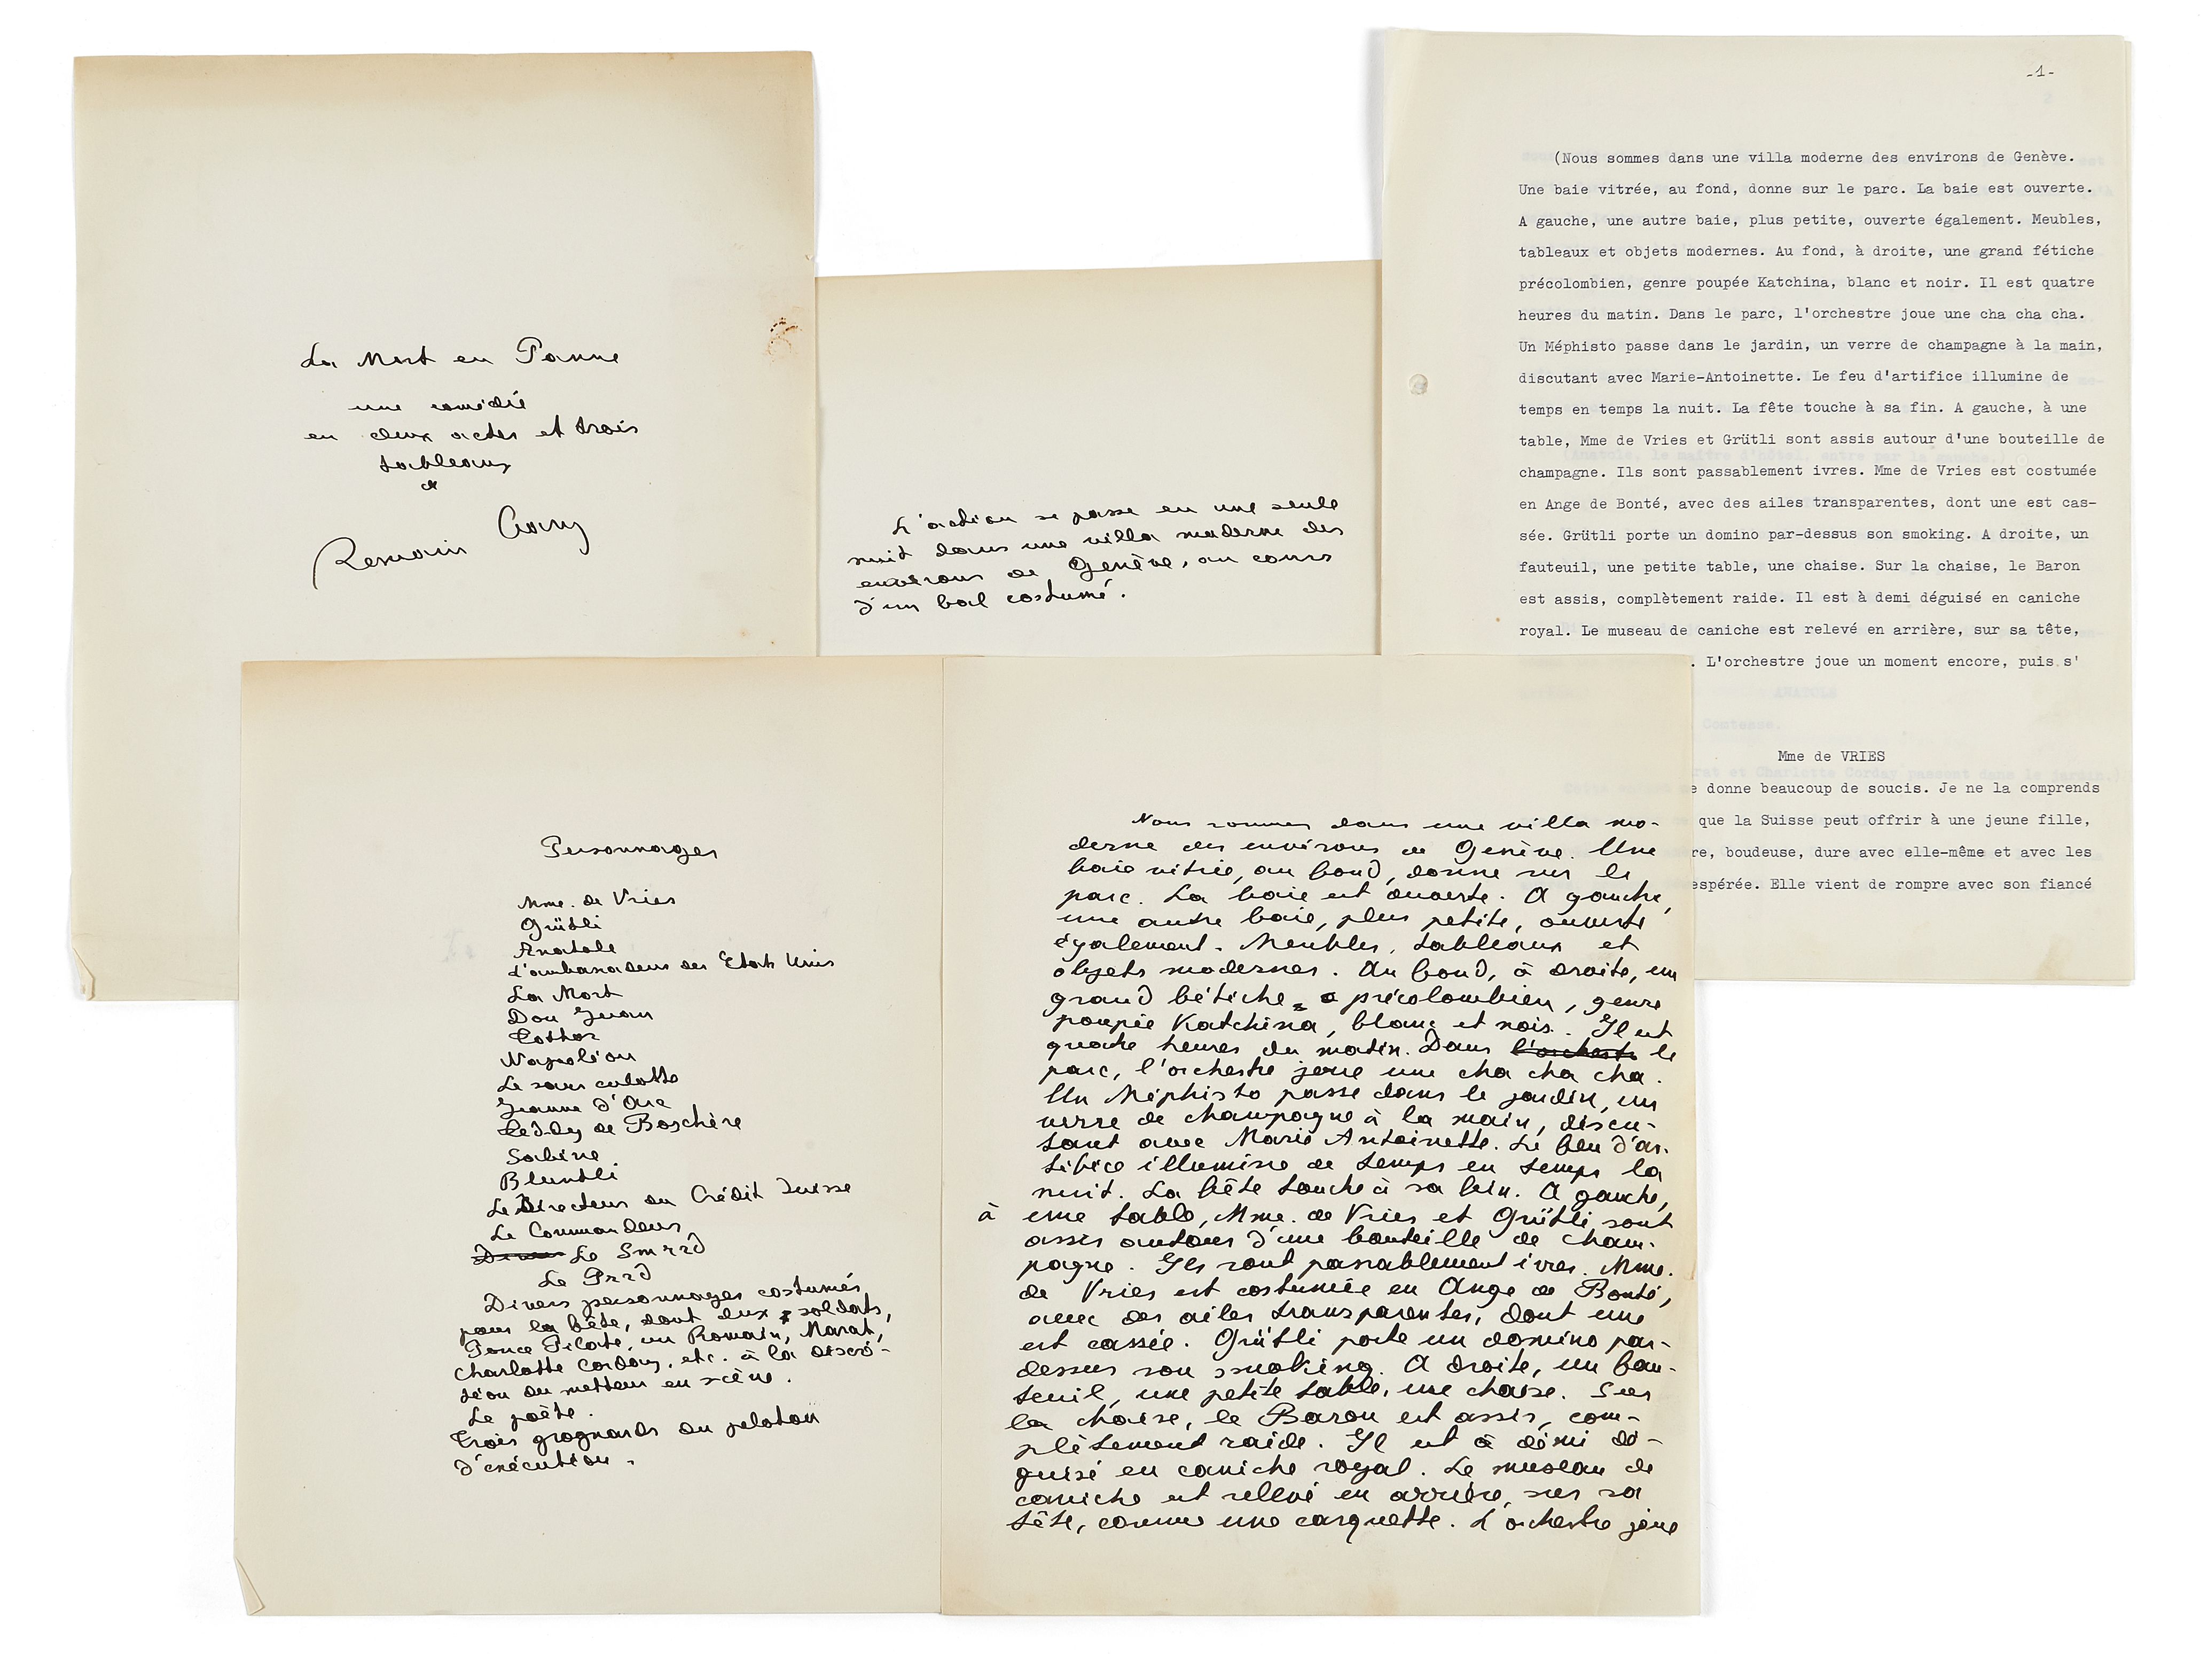 La Mort en Panne
une comédie
en deux actes et trois
tableaux
de
Romain Gary
L'action se passe en une seule
nuit dans une villa moderne des
environs de Genève, au cours
d'un bal costumé.
-1-
(Nous sommes dans une villa moderne des environs de Genève.
Une baie vitrée, au fond, donne sur le parc. La baie est ouverte.
A gauche, une autre baie, plus petite, ouverte également. Meubles,
tableaux et objets modernes. Au fond, à droite, une grand fétiche
précolombien, genre poupée Katchina, blanc et noir. Il est quatre
heures du matin. Dans le parc, l'orchestre joue une cha cha cha.
Un Méphisto passe dans le jardin, un verre de champagne à la main,
discutant avec Marie-Antoinette. Le feu d'artifice illumine de
temps en temps la nuit. La fête touche à sa fin. A gauche, à une
table, Mme de Vries et Grütli sont assis autour d'une bouteille de
champagne. Ils sont passablement ivres. Mme de Vries est costumée
en Ange de Bonté, avec des ailes transparentes, dont une est cas-
sée. Grütli porte un domino par-dessus son smoking. A droite, un
fauteuil, une petite table, une chaise. Sur la chaise, le Baron
est assis, complètement raide. Il est à demi déguisé en caniche
royal. Le museau de caniche est relevé en arrière, sur sa tête,
. L'orchestre joue un moment encore, puis s'
Mme de VRIES
e donne beaucoup de soucis. Je ne la comprends
que la Suisse peut offrir à une jeune fille,
re, boudeuse, dure avec elle-même et avec les
espérée. Elle vient de rompre avec son fiancé
Personnages
Mme. de Vries
Grütli
Anatole
L'ambassadeur des Etats Unis
La Mort
Don Juan
Napoléon
Le sans culotte
Jeanne d'Arc
Teddy de Boschère
Sabine
Bluntli
Le Directeur du Crédit Suisse
Le Commandeur
Le Smrrd
Le Prrd
Divers personnages costumés
pour la fête, dont deux soldats,
Ponce Pilate, un Romain, Marat,
Charlotte Corday, etc. à la discré-
tion du metteur en scène.
Le poète.
Trois grognards du peloton
d'exécution.
Nous sommes dans une villa mo-
derne des environs de Genève. Une
baie vitrée, au fond, donne sur le
parc. La baie est ouverte. A gauche,
une autre baie, plus petite, ouverte
également. Meubles, tableaux et
objets modernes. Au fond, à droite, un
grand fétiche précolombien, genre
poupée Katchina, blanc et noir. Il est
quatre heures du matin. Dans l'orchestr le
parc, l'orchestre joue une cha cha cha.
Un Méphisto passe dans le jardin, un
verre de champagne à la main, discu-
tant avec Marie Antoinette. Le feu d'ar-
tifice illumine de temps en temps la
nuit. La fête touche à sa fin. A gauche,
à une table, Mme. de Vries et Grütli sont
assis autour d'une bouteille de cham-
pagne. Ils sont passablement ivres. Mme.
de Vries est costumée en Ange de Bonté,
avec des ailes transparentes, dont une
est cassée. Grütli porte un domino par-
dessus son smoking. A droite, un fau-
teuil, une petite table, une chaise. Sur
la chaise, le Baron est assis, com-
plètement raide. Il est à demi dé-
guisé en caniche royal. Le museau de
caniche est relevé en arrière, sur sa
tête, comme une casquette. L'orchestre joue